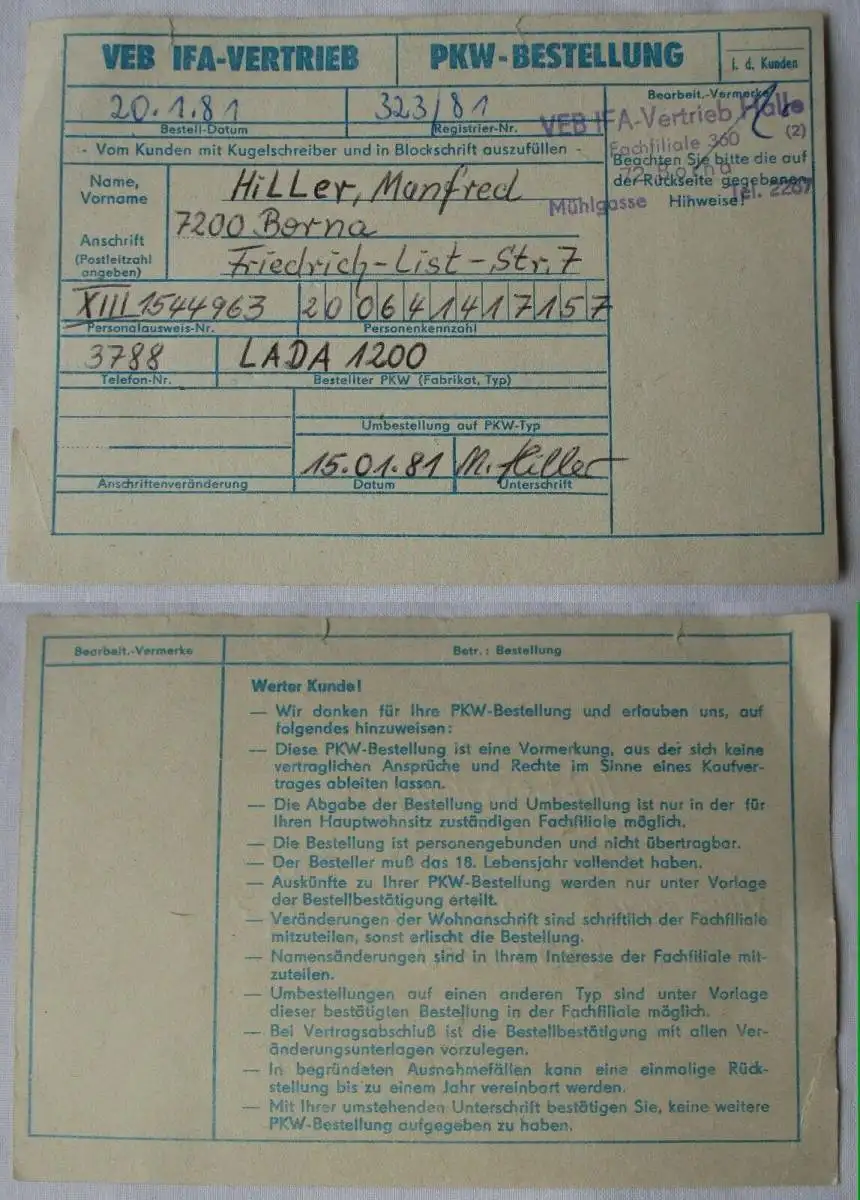 VEB IFA-VERTRIEB
PKW-BESTELLUNG
i. d. Kunden
20.1.81
323/81
Bestell-Datum
Registrier-Nr.
Bearbeit.-Vermerke
VEB IFA-Vertrieb Halle
(2)
Fachfiliale 360
72 Borna
Mühlgasse Tel. 2267
Beachten Sie bitte die auf
der Rückseite gegebenen
Hinweise!
- Vom Kunden mit Kugelschreiber und in Blockschrift auszufüllen -
Name,
Vorname
Hiller, Manfred
Anschrift
(Postleitzahl
angeben)
7200 Borna
Friedrich-List-Str. 7
XIII 1544963
200641417157
Personalausweis-Nr.
Personenkennzahl
3788
LADA 1200
Telefon-Nr.
Bestellter PKW (Fabrikat, Typ)
Umbestellung auf PKW-Typ
15.01.81
M. Hiller
Anschriftenveränderung
Datum
Unterschrift
Bearbeit.-Vermerke
Betr.: Bestellung
Werter Kunde!
— Wir danken für Ihre PKW-Bestellung und erlauben uns, auf
folgendes hinzuweisen:
— Diese PKW-Bestellung ist eine Vormerkung, aus der sich keine
vertraglichen Ansprüche und Rechte im Sinne eines Kaufver-
trages ableiten lassen.
— Die Abgabe der Bestellung und Umbestellung ist nur in der für
Ihren Hauptwohnsitz zuständigen Fachfiliale möglich.
— Die Bestellung ist personengebunden und nicht übertragbar.
— Der Besteller muß das 18. Lebensjahr vollendet haben.
— Auskünfte zu Ihrer PKW-Bestellung werden nur unter Vorlage
der Bestellbestätigung erteilt.
— Veränderungen der Wohnanschrift sind schriftlich der Fachfiliale
mitzuteilen, sonst erlischt die Bestellung.
— Namensänderungen sind in Ihrem Interesse der Fachfiliale mit-
zuteilen.
— Umbestellungen auf einen anderen Typ sind unter Vorlage
dieser bestätigten Bestellung in der Fachfiliale möglich.
— Bei Vertragsabschluß ist die Bestellbestätigung mit allen Ver-
änderungsunterlagen vorzulegen.
— In begründeten Ausnahmefällen kann eine einmalige Rück-
stellung bis zu einem Jahr vereinbart werden.
— Mit Ihrer umstehenden Unterschrift bestätigen Sie, keine weitere
PKW-Bestellung aufgegeben zu haben.